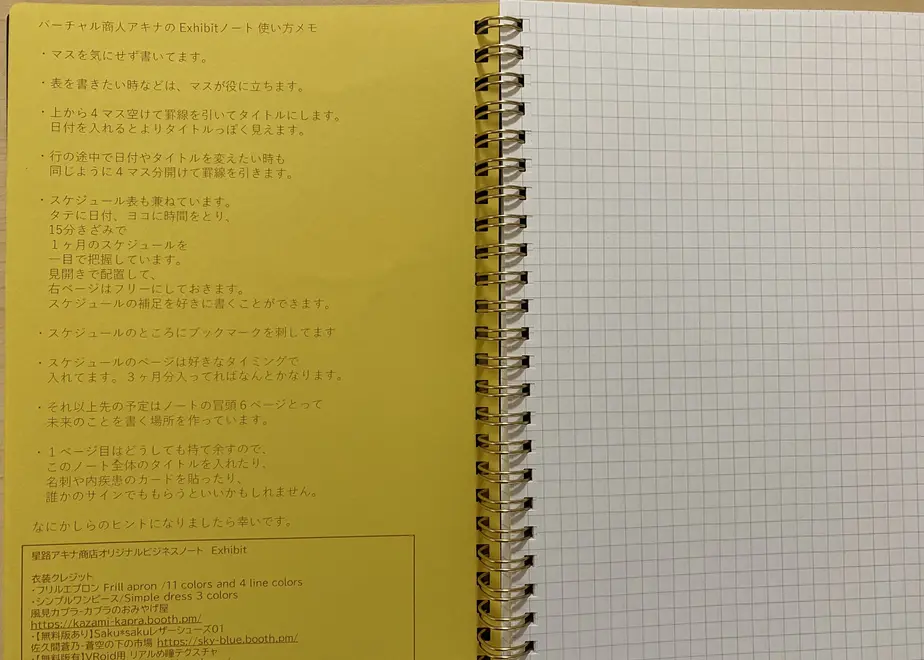 バーチャル商人アキナのExhibitノート 使い方メモ
・マスを気にせず書いてます。
・表を書きたい時などは、マスが役に立ちます。
・上から４マス空けて罫線を引いてタイトルにします。
日付を入れるとよりタイトルっぽく見えます。
・行の途中で日付やタイトルを変えたい時も
同じように４マス分開けて罫線を引きます。
・スケジュール表も兼ねています。
タテに日付、ヨコに時間をとり、
15分きざみで
１ヶ月のスケジュールを
一目で把握しています。
見開きで配置して、
右ページはフリーにしておきます。
スケジュールの補足を好きに書くことができます。
・スケジュールのところにブックマークを刺してます
・スケジュールのページは好きなタイミングで
入れてます。３ヶ月分入ってればなんとかなります。
・それ以上先の予定はノートの冒頭６ページとって
未来のことを書く場所を作っています。
・１ページ目はどうしても持て余すので、
このノート全体のタイトルを入れたり、
名刺や内疾患のカードを貼ったり、
誰かのサインでももらうといいかもしれません。
なにかしらのヒントになりましたら幸いです。
星路アキナ商店オリジナルビジネスノート Exhibit
衣装クレジット
・フリルエプロン Frill apron /11 colors and 4 line colors
・シンプルワンピース/Simple dress 3 colors
風見カプラ-カプラのおみやげ屋
https://kazami-kapra.booth.pm/
・【無料版あり】Saku*sakuレザーシューズ01
佐久間蒼乃-蒼空の下の市場 https://sky-blue.booth.pm/
・【無料版有】VRoid用 リアルめ瞳テクスチャ